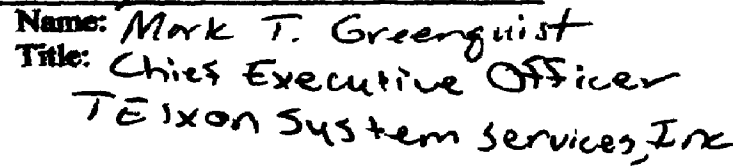 Name: Mark T. Greenquist
Title: Chief Executive Officer
TElxon System services, Inc